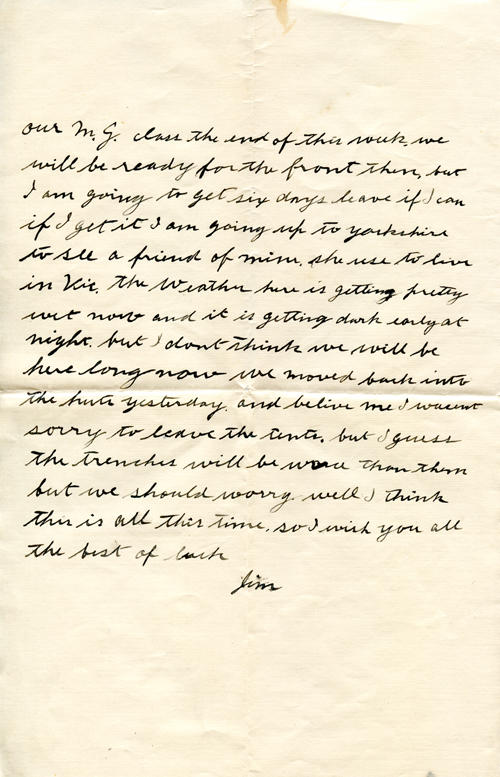 our M.G. class the end of this week we
will be ready for the front then, but
I am going to get six days leave if I can
if I get it I am going up to yorkshire
to see a friend of mine. she use to live
in Vic. the Weather here is getting pretty
wet now and it is getting dark early at
night. but I dont think we will be
here long now we moved back into
the huts yesterday. and belive me I wasent
sorry to leave the tents. but I guess
the trenches will be than them
but we should worry. well I think
this is all this time. so I wish you all
the best of luck
Jim